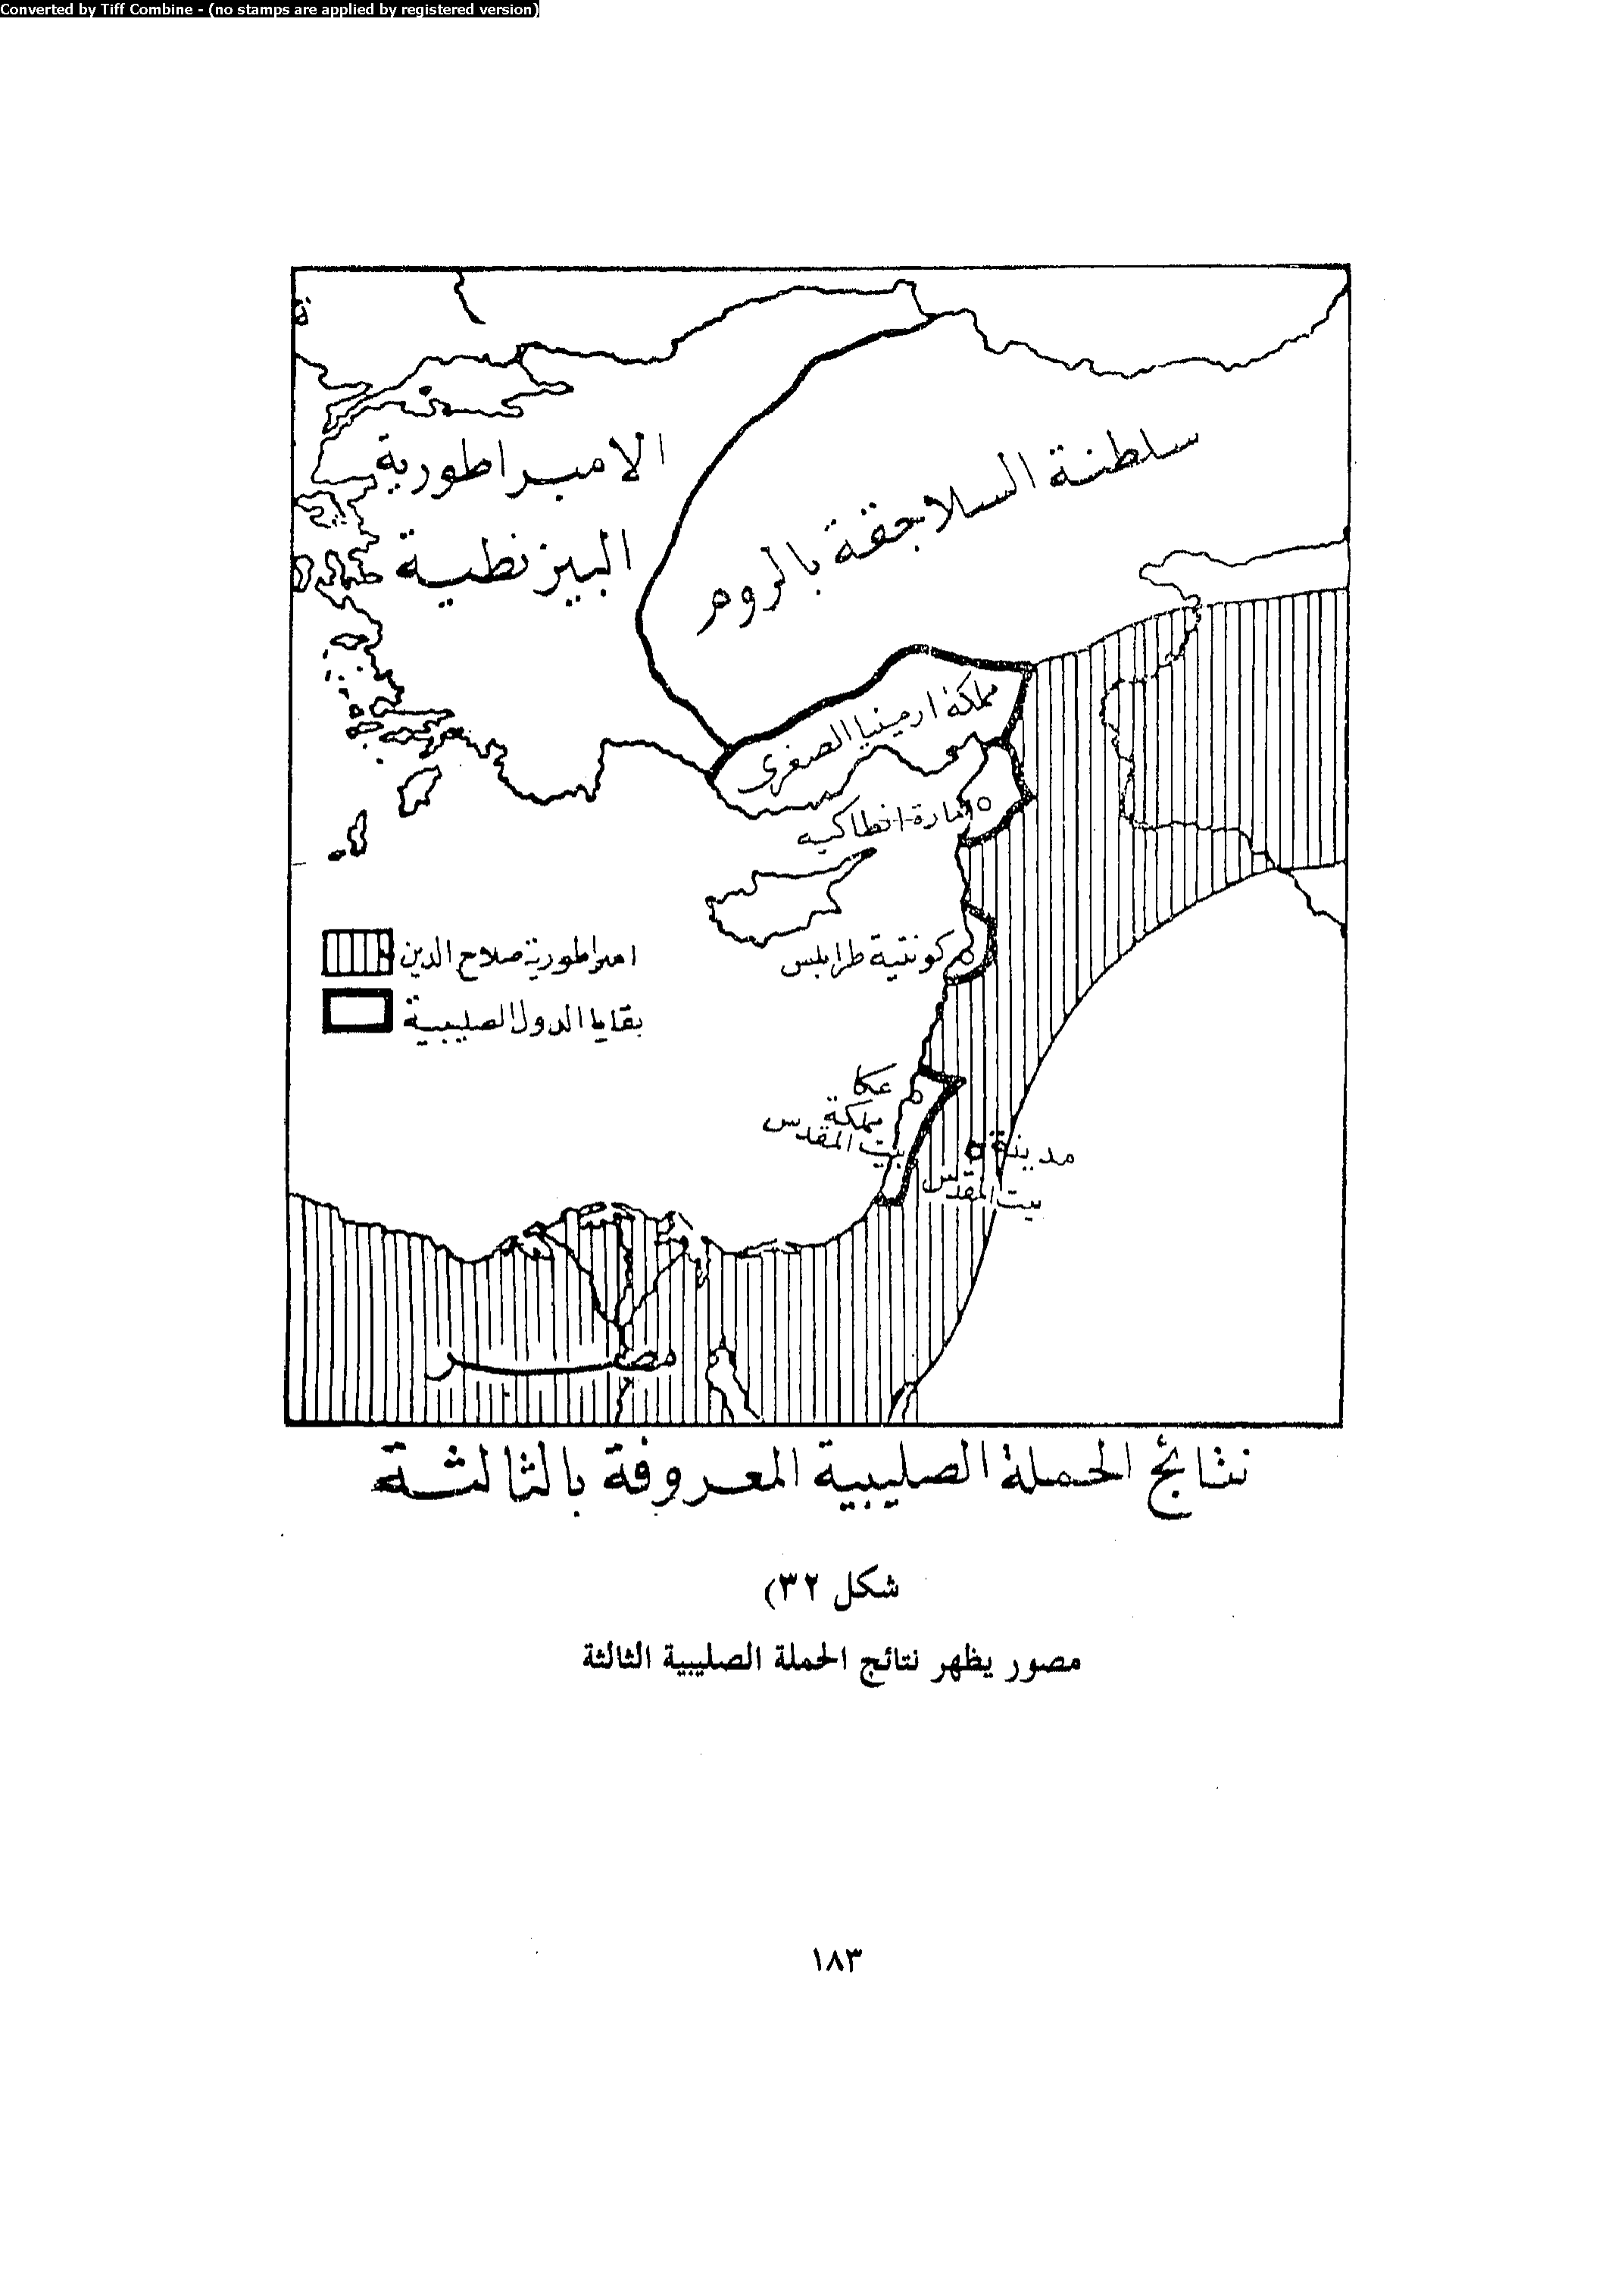 Converted by Tiff Combine - (no stamps are applied by registered version)
ة
الامبراطورية
البيزنطية
سلطنة السلاجقة بالروم
مملكة ارمينيا الصغرى
امارة انطاكيه
امبراطورية صلاح الدين
كونتية طرابلس
بقايا الدول الصليبية
عكا
مملكة
بيت المقدس
مدينة
بيت المقدس
مصر
نتائج الحملة الصليبية المعروفة بالثالثة
شكل ٣٢)
مصور يظهر نتائج الحملة الصليبية الثالثة
١٨٣